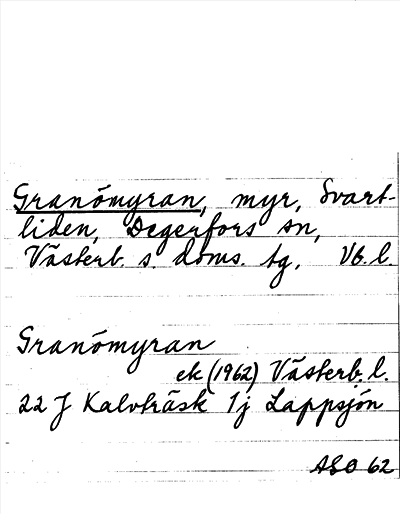 Granömyran, myr, Svart-
liden, Degerfors sn,
Västerb. s. doms. tg. Vb. l.
Granömyran
ek (1962) Västerb. l.
22 J Kalvträsk 1j Lappsjön
ASO 62